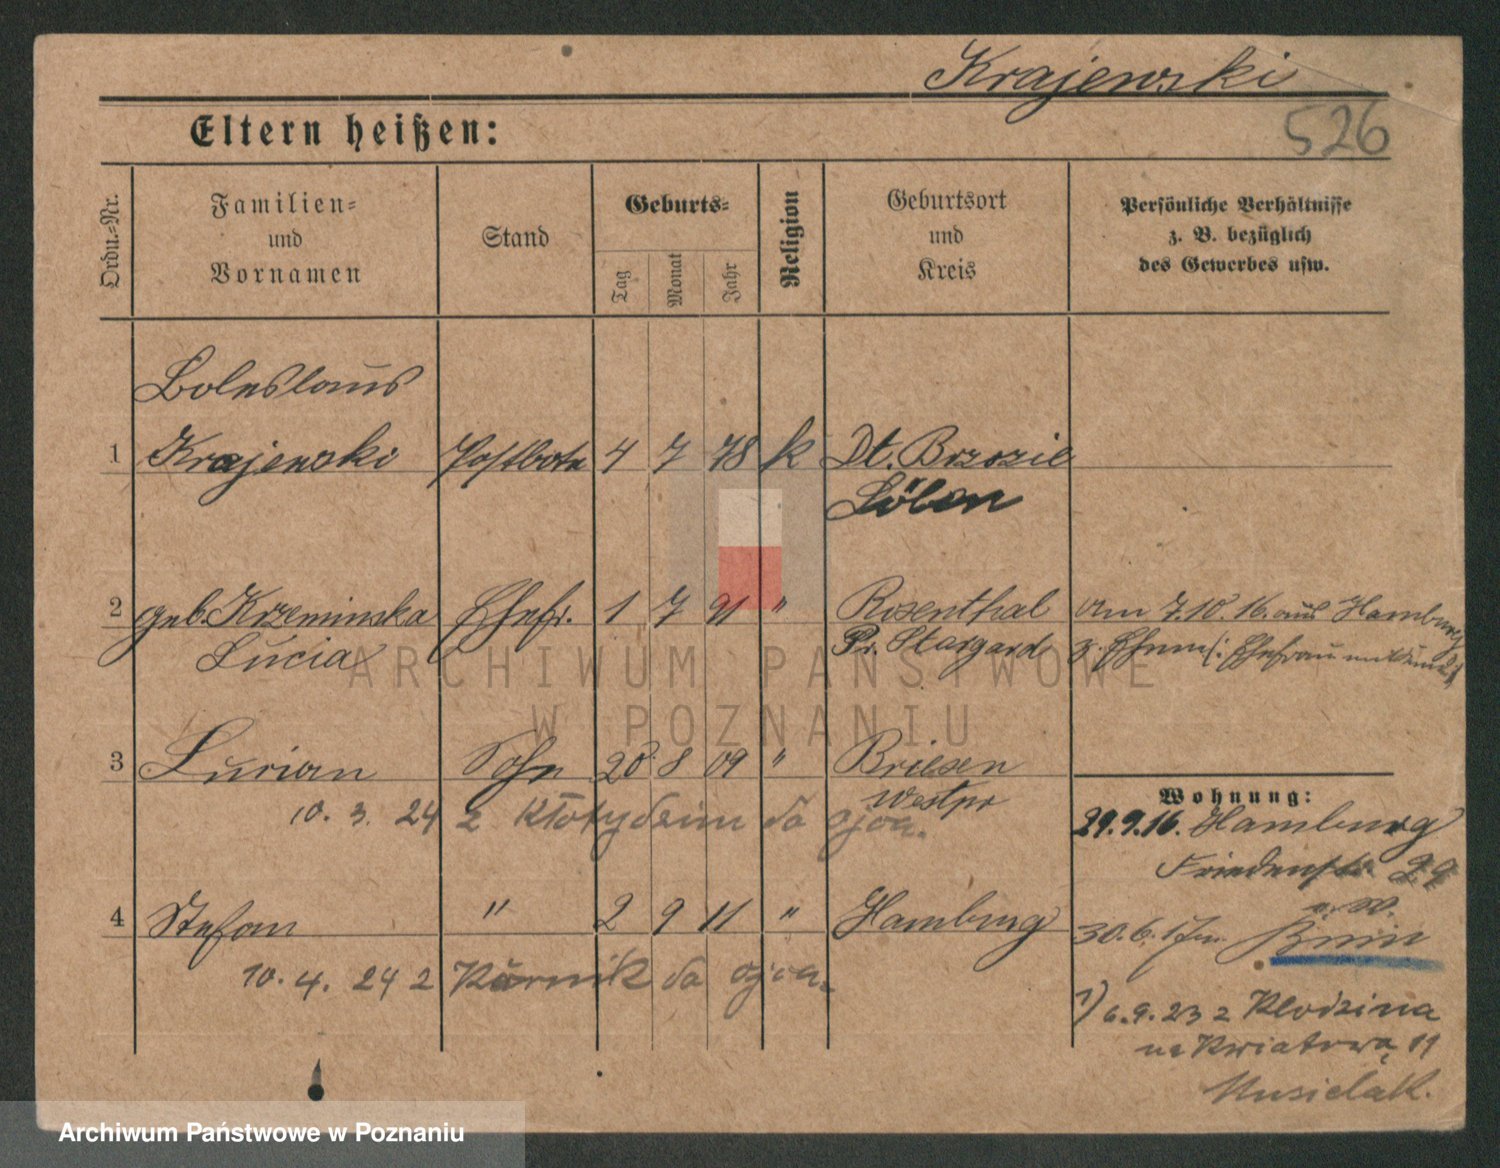 Krajewski
526
Eltern heißen:
Ordn.=Nr.
Familien=
und
Vornamen
Stand
Geburts=
Tag
Monat
Jahr
Religion
Geburtsort
und
Kreis
Persönliche Verhältnisse
z. B. bezüglich
des Gewerbes usw.
Boleslaus
1 Krajewski Postbote 4 7 78 k Dt. Brzozie
Löben
2 geb. Krzeminska Ehefr. 1 7 91 " Rosenthal
Lucia Pr. Stargard
am 7.10.16. aus Hamburg
z. Ehem. Ehefrau mit
3 Lucian Sohn 20 8 09 " Briesen
Westpr
10. 3. 24 z do ojca.
4 Stefan " 2 9 11 " Hamburg
10. 4. 24 z Kórnik do ojca.
Wohnung:
29.9.16. Hamburg
Friedenstr. 29
30.6.17 Bnin
1) 6.9.23 z
na Kwiatową 11
Musielak.
ARCHIWUM PAŃSTWOWE
W POZNANIU
Archiwum Państwowe w Poznaniu